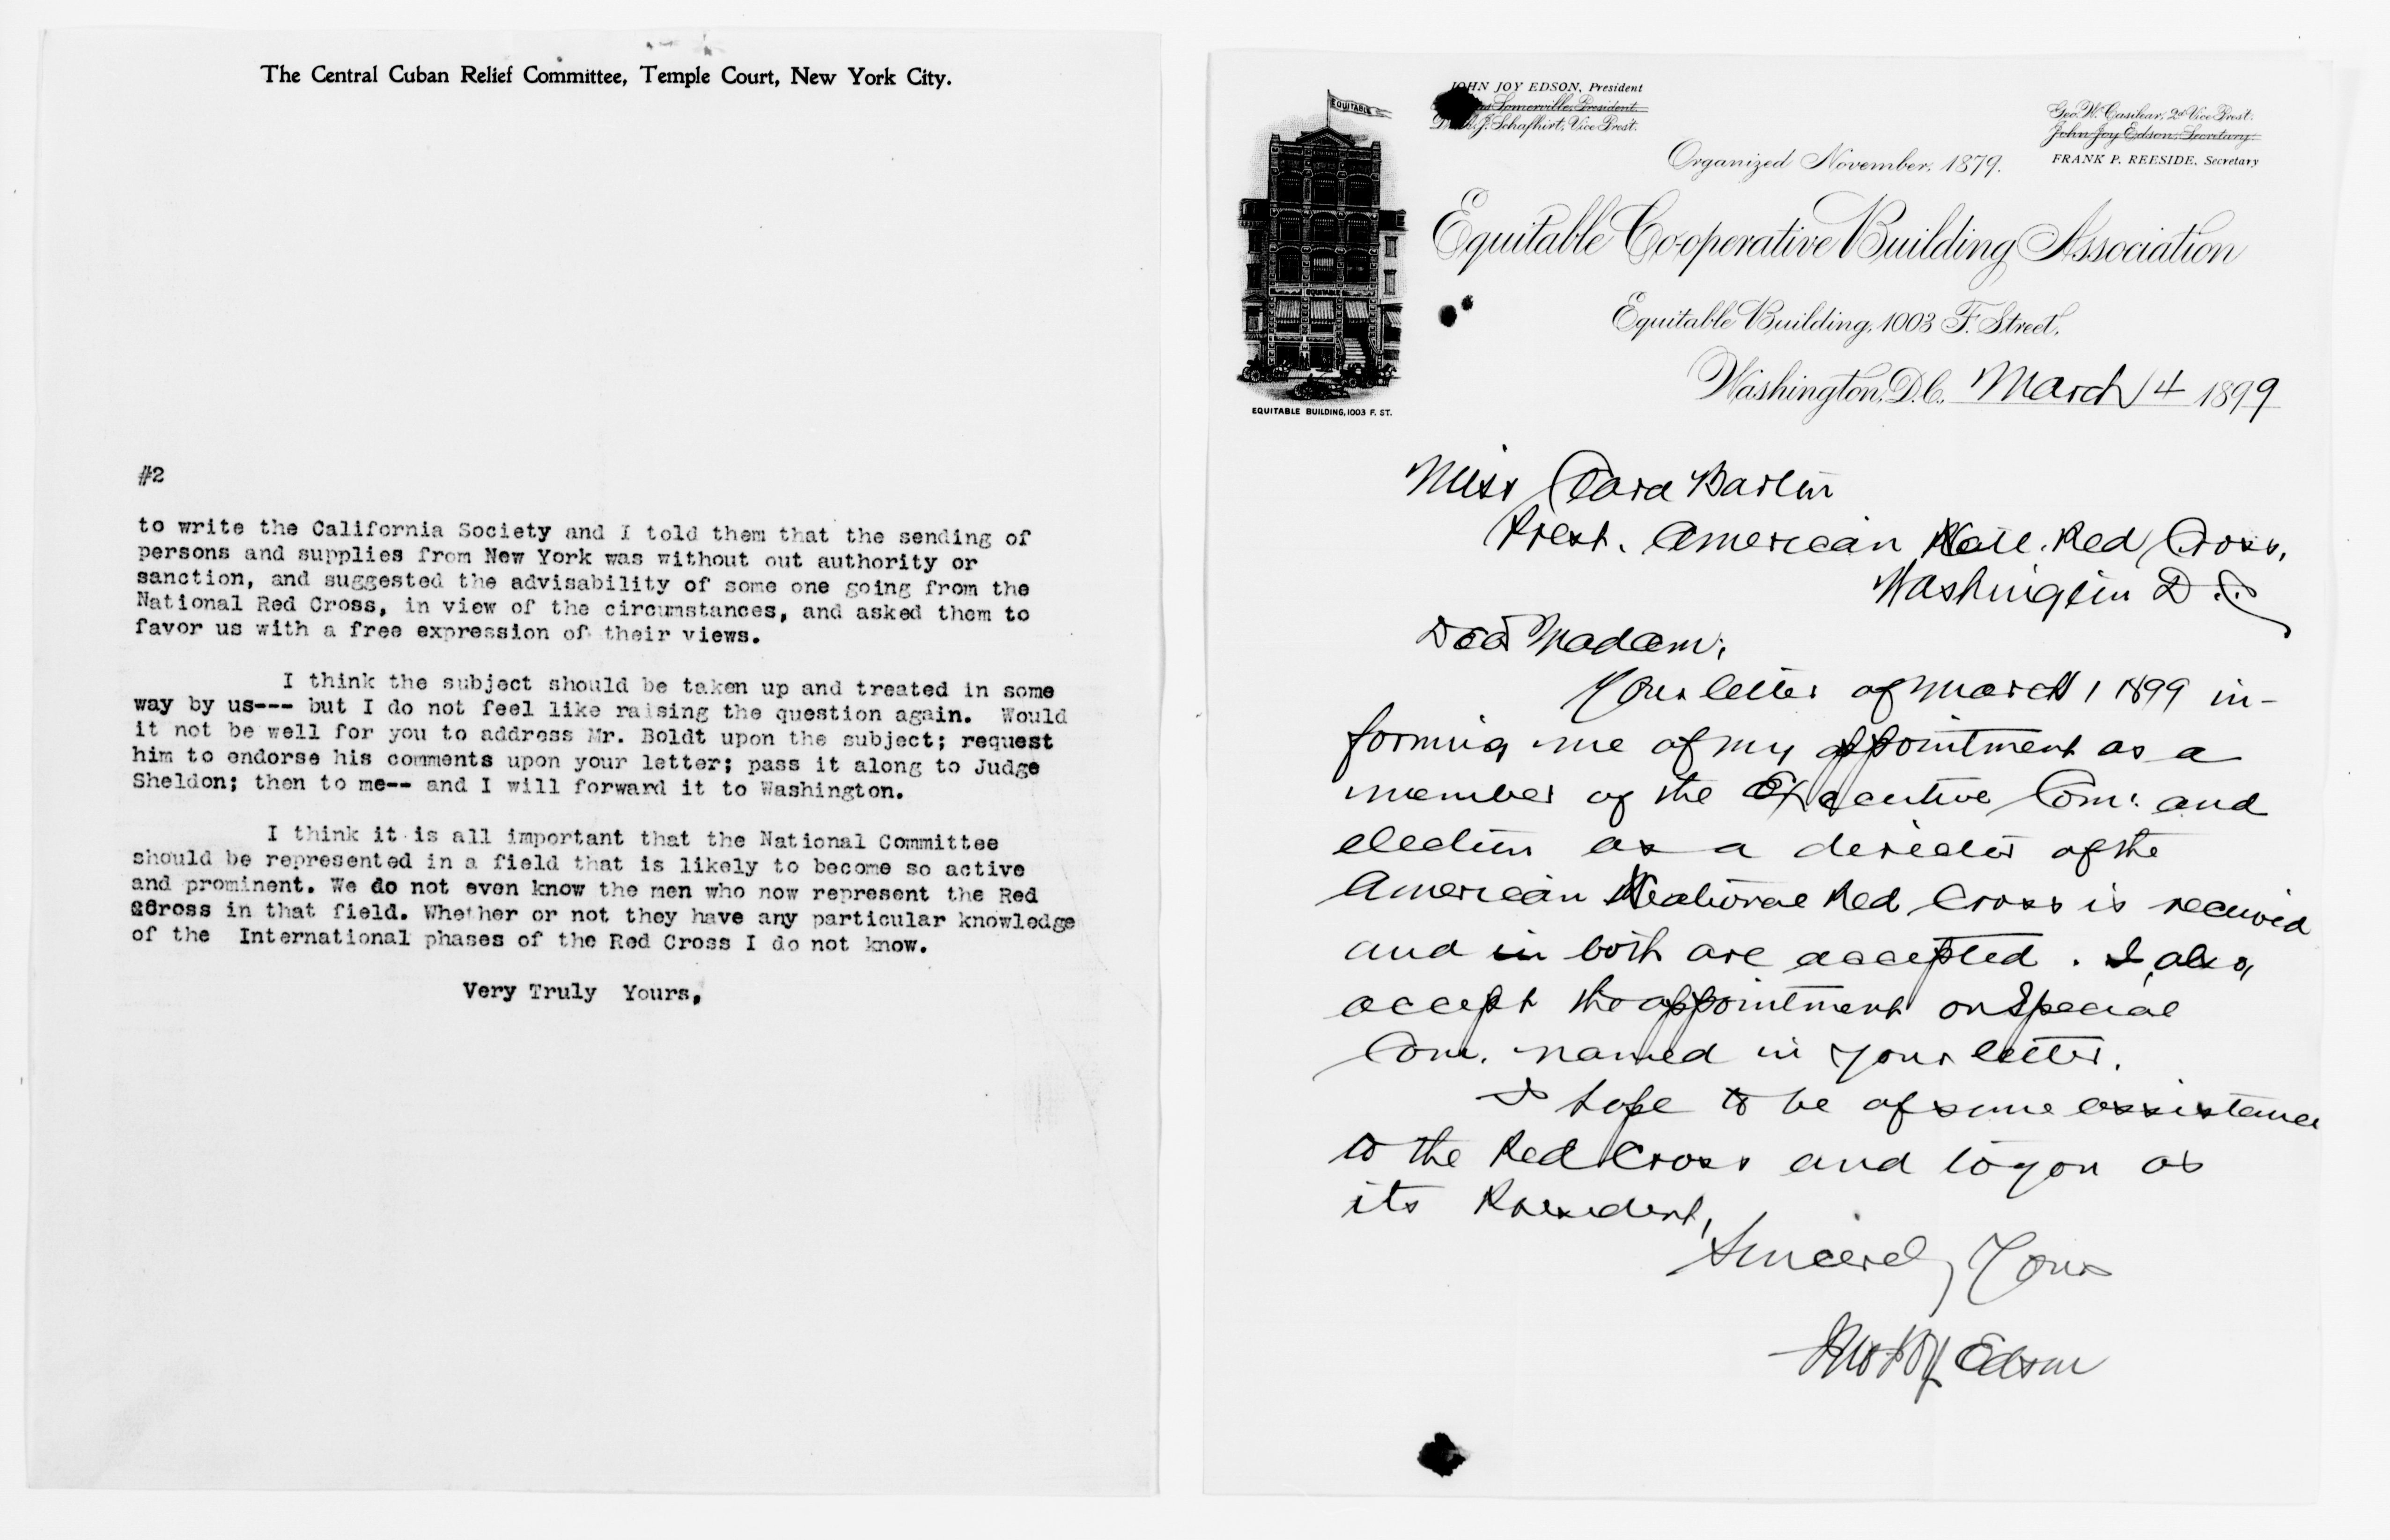 The Central Cuban Relief Committee, Temple Court, New York City.
#2
to write the California Society and I told them that the sending of
persons and supplies from New York was without out authority or
sanction, and suggested the advisability of some one going from the
National Red Cross, in view of the circumstances, and asked them to
favor us with a free expression of their views.
I think the subject should be taken up and treated in some
way by us--- but I do not feel like raising the question again. Would
it not be well for you to address Mr. Boldt upon the subject; request
him to endorse his comments upon your letter; pass it along to Judge
Sheldon; then to me-- and I will forward it to Washington.
I think it is all important that the National Committee
should be represented in a field that is likely to become so active
and prominent. We do not even know the men who now represent the Red
Cross in that field. Whether or not they have any particular knowledge
of the International phases of the Red Cross I do not know.
Very Truly Yours,
EQUITABLE
EQUITABLE
EQUITABLE BUILDING, 1003 F. ST.
JOHN JOY EDSON, President
Somerville, President.
J. Schafhirt, Vice Prest.
Geo. W. Casilear, 2d Vice Prest.
John Joy Edson, Secretary.
FRANK P. REESIDE, Secretary
Organized November, 1879.
Equitable Co-operative Building Association
Equitable Building, 1003 F. Street.
Washington, D.C., March 4 1899
Miss Clara Barton
Prest. American Natl. Red Cross,
Washington D.C.
Dear Madam:
Your letter of March 1 1899 in-
forming me of my appointment as a
member of the Executive Com: and
election as a director of the
American National Red Cross is received
and in both are accepted. I, also,
accept the appointment on Special
Com. named in your letter.
I hope to be of some assistance
to the Red Cross and to you as
its President,
Sincerely Yours
Jno Joy Edson